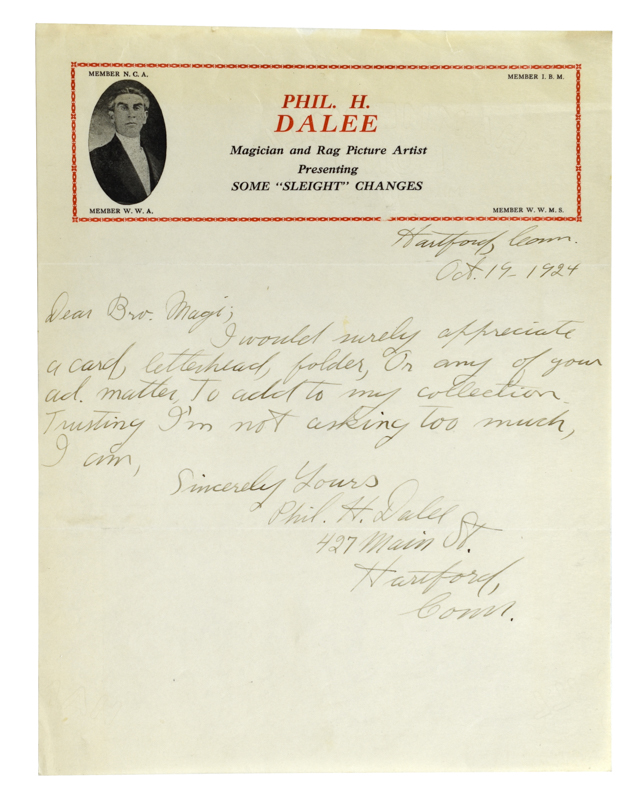 MEMBER N. C. A.
MEMBER I. B. M.
PHIL. H.
DALEE
Magician and Rag Picture Artist
Presenting
SOME "SLEIGHT" CHANGES
MEMBER W. W. A.
MEMBER W. W. M. S.
Hartford, Conn.
Oct. 19 - 1924
Dear Bro. Magi;
I would surely appreciate
a card, letterhead, folder, Or any of your
ad. matter, To add to my collection.
Trusting I'm not asking too much,
I am,
Sincerely Yours
Phil. H. Dalee
427 Main St.
Hartford,
Conn.